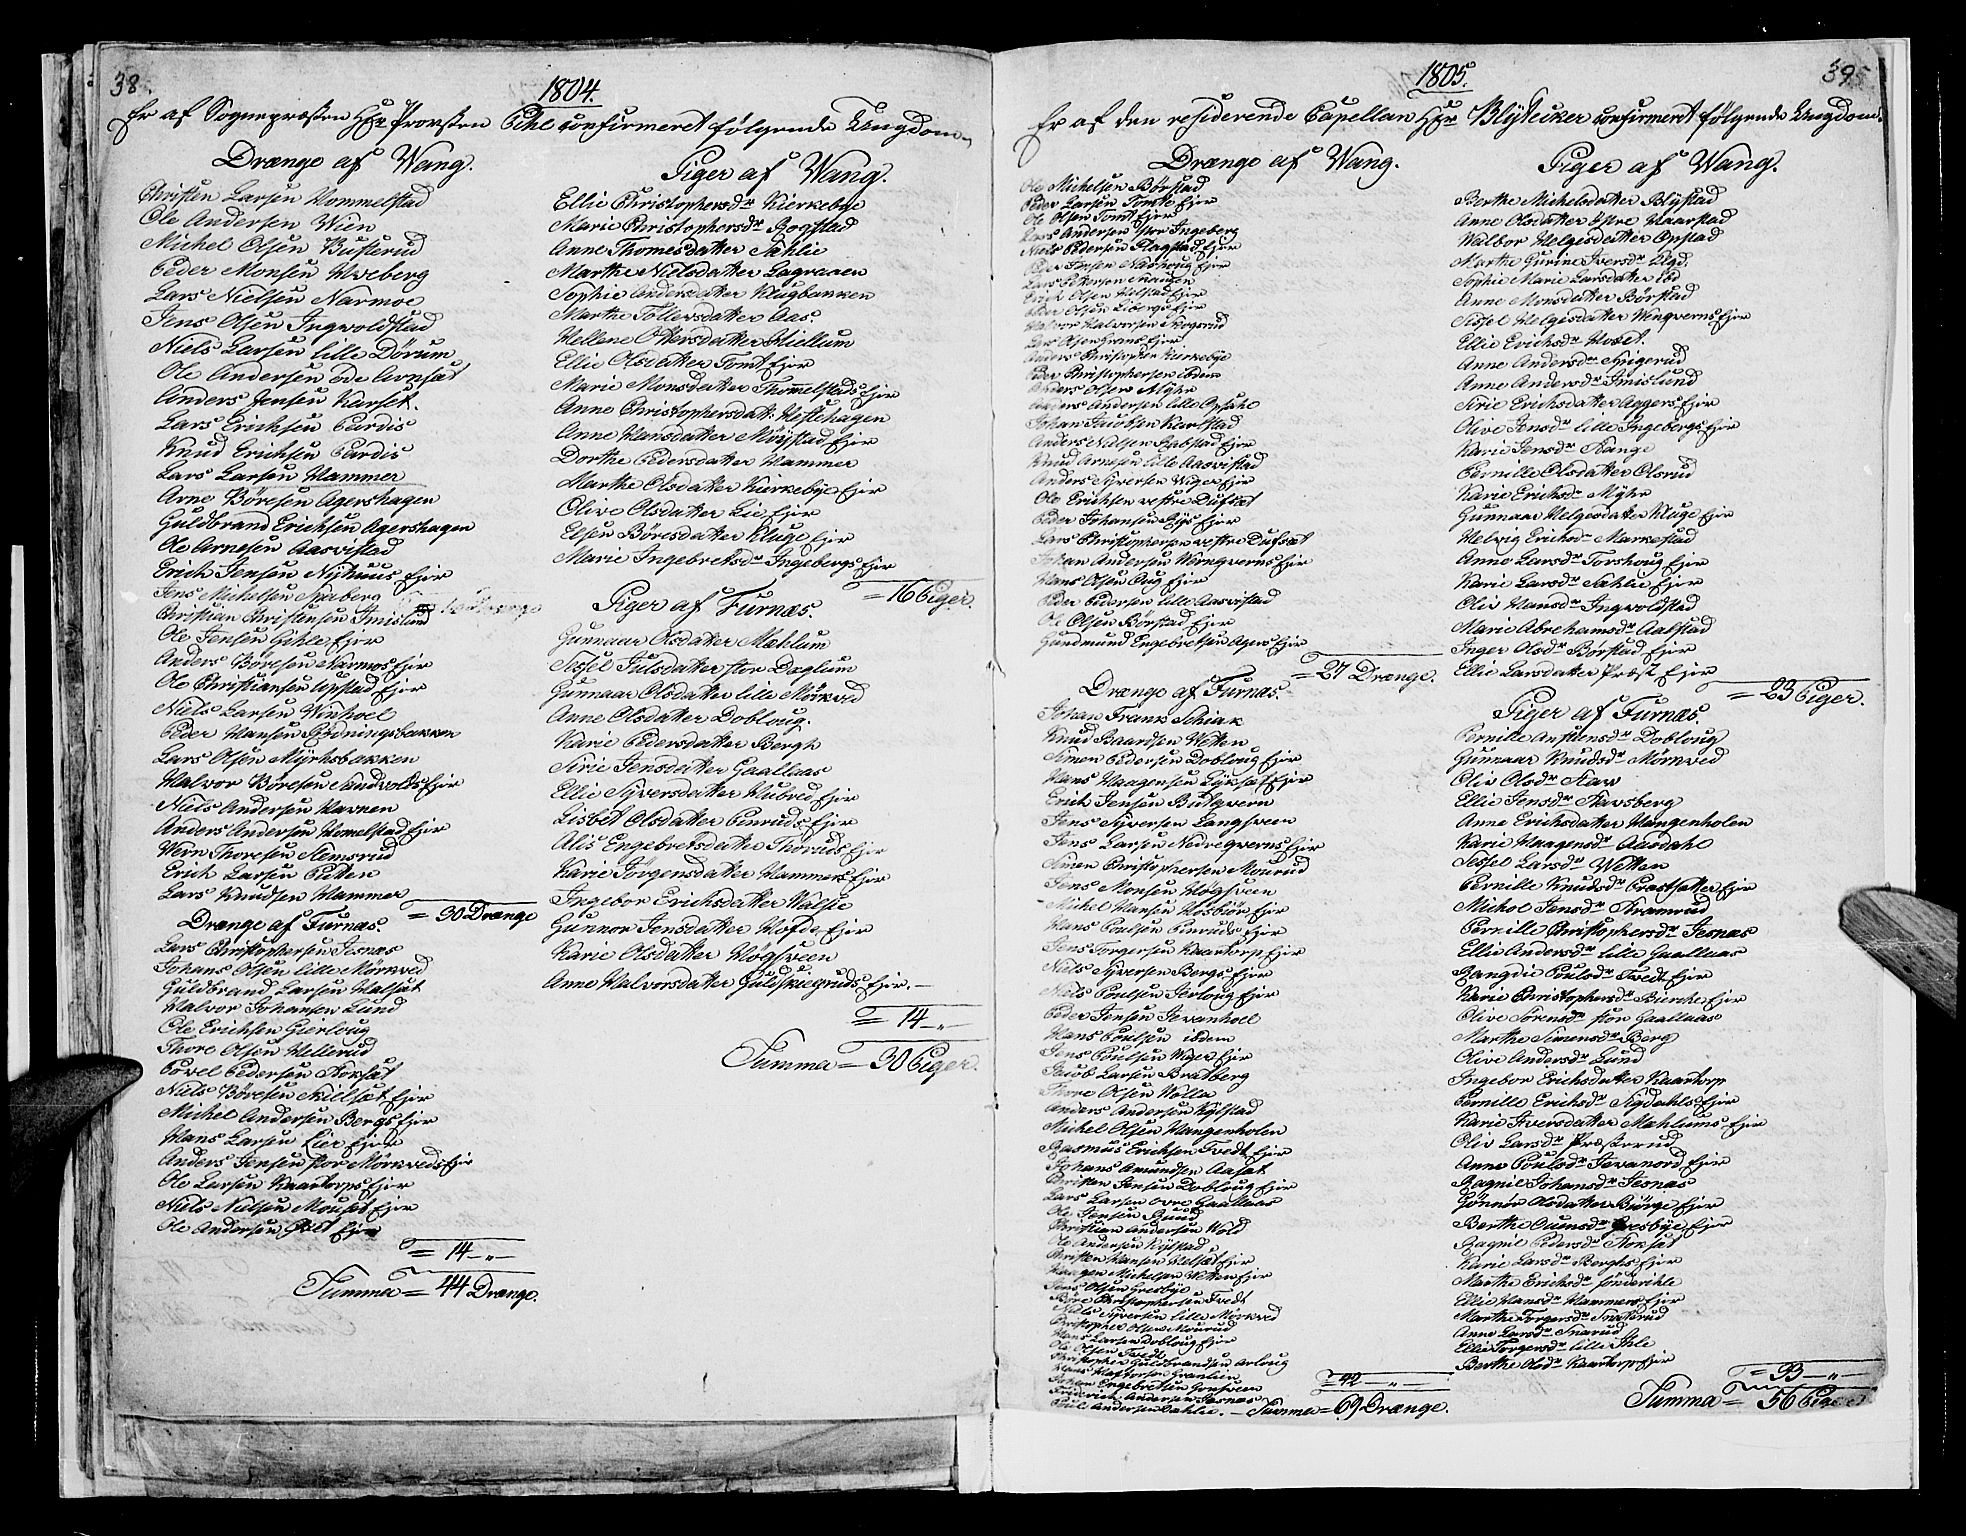 38.
1804.
Er af Sognepræsten Hr. Provsten Pihl confirmeret følgende Ungdom
Drænge af Wang.
Christen Larsen Hommelstad
Ole Andersen Wien
Michel Olsen Busterud
Peder Monsen Hveberg
Lars Nielsen Narmoe
Jens Olsen Ingvoldstad
Niels Larsen lille Dörum
Ole Andersen öde Arnsæt
Anders Jensen Karset.
Lars Erichsen Pardis
Knud Erichsen Pardis
Lars Larsen Hammer
Arne Böresen Agershagen
Guldbrand Erichsen Agershagen
Ole Arnesen Aasvistad
Erich Jensen Nÿhuus Ejer
Jens Michelsen Spaberg
Christian Christensen Imislund
Ole Jensen Gihle Ejer
Anders Böresen Narmos Ejer
Ole Christiansen Opstad Ejer
Niels Larsen Winhoel
Peder Hansen Rödningsbakken
Lars Olsen Mÿhrsbakken
Halvor Böresen Sandvolds Ejer
Niels Andersen Havnen
Anders Andersen Hemelstad Ejer
Wern Thoresen Stemsrud
Erich Larsen Petten
Lars Knudsen Hammer
= 30 Drænge
Drænge af Furnæs.
Lars Christophersen Jesnæs
Johans Olsen lille Mörkved
Guldbrand Larsen Halsæt
Halvor Johansen Lund
Ole Erichsen Gierloug
Thore Olsen Hellerud
Povel Pedersen Stoksæt
Niels Böresen Skillsæt Ejer
Michel Andersen Bergs Ejer
Hans Larsen Eier Ejede
Anders Jensen stor Mörkveds Ejer
Ole Larsen Kaartorps Ejer
Niels Nielsen Mouset Ejer
Ole Andersen Ejer
= 14 – „ –
Summa = 44 Drænge.
Piger af Wang.
Ellie Christophersdr Kierkebÿe
Marie Christophersdr Bogstad
Anne Thomesdatter Sahlie
Marthe Nielsdatter Lagraaen
Sophie Andersdatter Klugbakken
Marthe Tollersdatter Aas.
Hellene Ottersdatter Kiellum
Ellie Olsdatter Tomt Ejer
Marie Monsdatter Thommelstads Ejer
Anne Christophersdatr Hestehagen
Anne Hansdatter Möÿstad Ejer
Dorthe Pedersdatter Hammer
Marthe Olsdatter Kierkebÿe Ejer
Olive Olsdatter Lie Ejer
Elsen Böresdatter Kluge Ejer
Marie Ingebretsdr Ingebergs Ejer
= 16 Piger.
Piger af Furnæs.
Gunnaar Olsdatter Mæhlum
Sissel Julsdatter stor Daglum
Gunnaar Olsdatter lille Mörkved
Anne Olsdatter Dobloug.
Karie Pedersdatter Bergh
Sirie Jensdatter Gaallaas
Ellie Syversdatter Hubred Ejer
Lisbet Olsdatter Pinruds Ejer
Alis Engebretsdatter Thoruds Ejer
Karie Jörgensdatter Hammers Ejer
Ingebor Erichsdatter Halsie
Gunnor Jensdatter Hofde Ejer
Karie Olsdatter Högsveen
Anne Halvorsdatter Guldskiegruds Ejer. –
= 14 – „ –
Summa = 30 Piger.
39.
1805.
Er af den residerende Capellan Hr. Blÿtecker confirmeret følgende Ungdom.
Drænge af Wang.
Ole Michelsen Börstad
Peder Larsen Tomte Ejer
Ole Olsen Tomt Ejer
Lars Andersen stor Ingeberg
Niels Pedersen Flagstad Ejer
Peder Jensen Næshoug Ejer
Lars Pettersen Skougen
Erich Olsen Holstad Ejer
Peder Olsen Libergs Ejer
Halvor Halvorsen Skogsrud
Lars Olsen Grans Ejer
Anders Christophsr Kierkebÿe
Peder Christophersen ibidem
Anders Olsen Mÿhr
Anders Andersen lille Opsahl
Johan Jacobsen Kiærstad
Anders Nielsen Stabstad Ejer
Knud Arnesen lille Aasvistad
Anders Syversen Wiger Ejer
Ole Erichsen vestre Dufsæt
Peder Johansen Rÿs Ejer
Lars Christophersen vestre Dufsæt
Johan Andersen Wernqverns Ejer
Hans Olsen Aug Ejer
Peder Pedersen lille Aasvistad
Ole Olsen Börstad Ejer
Gundmund Engebretsen Agers Ejer
= 27 Drænge.
Drænge af Furnæs.
Johan Frank Schiak
Knud Baardsen Wetten
Simen Pedersen Dobloug Ejer
Hans Haagensen Lÿksæt Ejer
Erich Jensen Butqvern
Jens Syversen Langsveen
Jens Larsen Nedreqverns Ejer
Simen Christophersen Mourud
Jens Monsen Högsveen
Michel Hansen Hosbiör Ejer
Hans Poulsen Pinruds Ejer
Jens Torgersen Kaartorp Ejer
Niels Syversen Bergs Ejer
Niels Poulsen Jerloug Ejer
Peder Jensen Jevanhoel
Hans Poulsen ibidem
Jens Poulsen Wiger Ejer
Jacob Larsen Bratberg
Thore Olsen Wolla
Anders Andersen Kÿlstad
Michel Olsen Hangenholen
Rasmus Erichsen Tvedt Ejer
Johans Amundsen Aasæt
Christen Jensen Dobloug Ejer
Lars Larsen övre Gaallaas
Ole Jensen Rund
Christian Andersen Wold
Ole Andersen Kÿlstad
Christen Hansen Helsæt Ejer
Haagen Michelsen Wetten Ejer
Jens Olsen Gresbÿe
Böre Christophersen Tvedt
Niels Syversen lille Mörkved
Christopher Olsen Mourud
Hans Larsen Dobloug Ejer
Ole Olsen Tvedt
Christopher Guldbrandsen Arloug
Hans Granlien
Johan Engebretsen Gonsveen
Friderich Andersen Jesnæs
Poul Andersen Dahlie.
= 42 – „ –
– Summa = 69 Drænge.
Piger af Wang.
Berthe Michelsdatter Blÿstad
Anne Olsdatter Haarstad
Walbor Helgesdatter Opstad
Marthe Gurine Iversdr Ulgd.
Sophie Marie Larsdatter Eed
Anne Monsdatter Börstad
Sissel Helgesdatter Wenqverns Ejer
Ellie Erichsdr Hoset.
Anne Andersdr Spigerud
Anne Andersdr Imislund
Sirie Erichsdatter Aggers Ejer
Olive Jensdr lille Ingebergs Ejer
Karie Jensdr Stange
Pernille Olsdatter Olsrud
Karie Erichsdr Mÿhr
Gunnaar Helgesdatter Kluge Ejer
Helvig Erichsdr Markestad
Anne Larsdr Torshoug Ejer
Karie Larsdr Sahlie Ejer
Oliv Hansdr Ingvoldstad
Marie Abrehamsdr Aalstad
Inger Olsdr Börstad Ejer
Ellie Larsdatter Præst Ejer
= 23 Piger.
Piger af Furnæs.
Pernille Anstensdr Dobloug
Gunnaar Knudsdr Mörkved
Oliv Olsdr Stav
Ellie Jensdr Stavsberg
Anne Erichsdatter Hangenholen
Karie Haagensdr Aasdahl
Sessel Larsdr Wetten
Pernille Knudsdr Præstsætter Ejer
Michol Jensdr Stramrud
Pernille Christophersdr Jesnæs
Ellie Andersdr lille Gaallaas
Rangdie Poulsdr Tvedt Ejer
Karie Christophersdr Bierche Ejer
Olive Sörensdr stor Gaallaas
Marthe Simensdr Berg
Olive Andersdr Lund
Ingebor Erichsdatter Kaartorp
Pernille Erichsdr Sigdahls Ejer
Karie Iversdatter Mæhlums Ejer
Oliv Larsdr Præsterud
Anne Poulsdr Jevanord Ejer
Ragnil Johansdr Jesnæs
Gönner Olsdatter Biörge Ejer
Berthe Ouensdr Gresbÿe Ejer
Ragnil Pedersdr Stoksæt
Karie Larsdr Berghs Ejer
Marthe Erichsdr Sönderihle
Ellie Hansdr Hammers Ejer
Marthe Torgersdr Snaterud
Anne Larsdr Snarud
Ellie Torgersdr lille Ihle
Berthe Olsdr Kaartorp Ejer
= 33 – „ –
Summa = 56 Piger